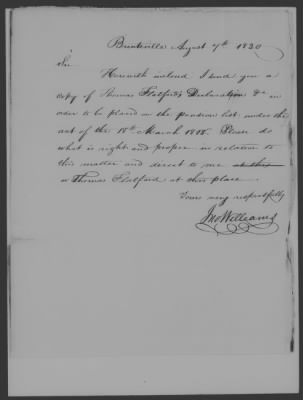 August 7th 1830
Sir
Herewith inclosed I send you a
copy of Thomas Flatford's Declaration &c in
order to be placed on the pension list under the
act of the 18th March 1818. Please do
what is right and proper in relation to
this matter and direct to me at this
or Thomas Flatford at this place.
Yours very respectfully
Jno Williams